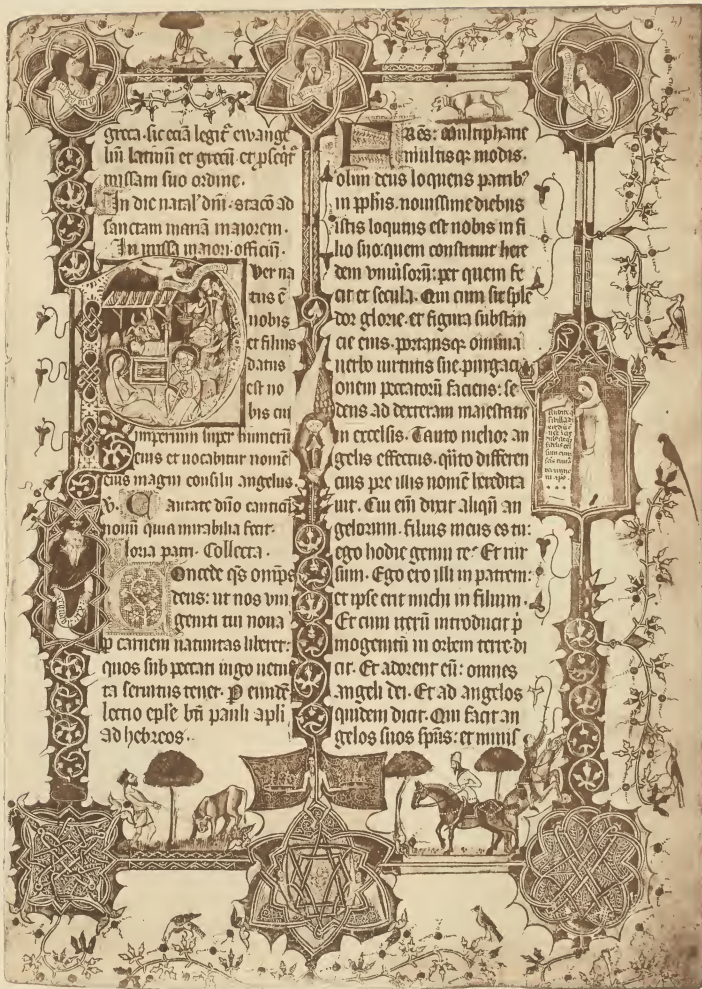 greca. sic eciā legit᷑ ewange
liū latinū et grecū. et pseqr̄
missam suo ordine.
In die natal' dn̄i. stacō ad
sanctam mariā maiorem.
In missa maiori. officiū.
Puer na
tus ē
nobis
et filius
datus
est no
bis cui
imperium super humerū
eius et uocabitur nomē
eius magni consilii angelus.
V. Cantate dn̄o canticū
nouū quia mirabilia fecit.
Gloria patri. Collecta.
Concede qs om̄ps
deus: ut nos vni
geniti tui noua
p carnem natiuitas liberet:
quos sub peccati iugo uetus
ta seruitus tenet. P eundē
lectio eple bt̄i pauli apli
ad hebreos.
Fr̄es: multiphane
multisq; modis.
olim deus loquens patrib᷒
in pphis. nouissime diebus
istis locutus est nobis in fi
lio suo: quem constituit here
dem vniūsorū: per quem fe
cit et secula. Qui cum sit sple
dor glorie. et figura substan
cie eius. portansq; omnia
uerbo uirtutis sue. purgaci
onem peccatorū faciens: se
dens ad dexteram maiestatis
in excelsis. Tanto melior an
gelis effectus. qūto differen
cius pre illis nomē heredita
uit. Cui eīn dixit aliqn̄ an
gelorum. filius meus es tu:
ego hodie genui te. Et rur
sum. Ego ero illi in patrem:
et ipse erit michi in filium.
Et cum iterū introducit p̄
mogenitū in orbem terre. di
cit. Et adorent eū: omnes
angeli dei. Et ad angelos
quidem dicit. Qui facit an
gelos suos sp̄us: et minis